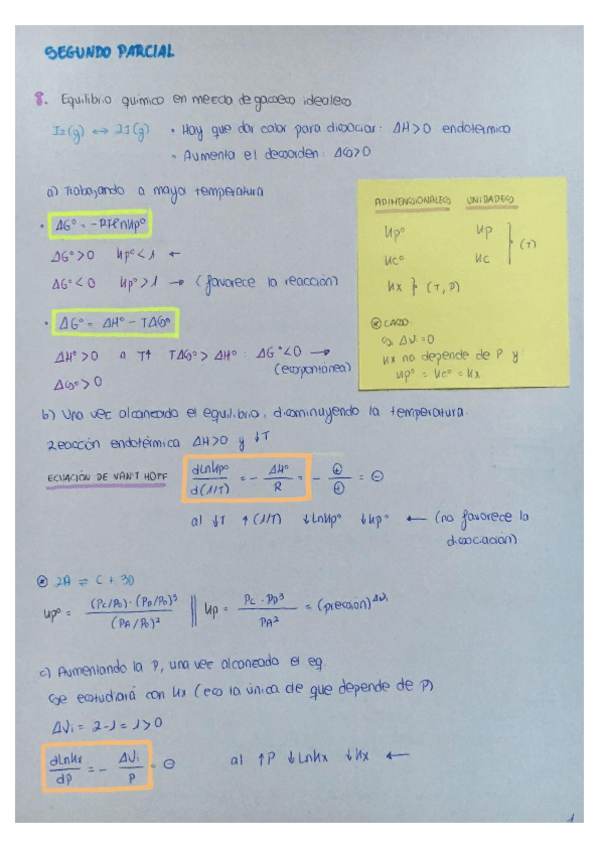 SEGUNDO PARCIAL
8. Equilibrio químico en mezcla de gases ideales
I₂(g) ↔ 2I(g) • Hay que dar calor para disociar: ΔH>0 endotérmico
• Aumenta el desorden: ΔS>0
a) Trabajando a mayor temperatura
• ΔG° = -RTlnKp°
ΔG°>0 Kp°<1 ←
ΔG°<0 Kp°>1 → (favorece la reacción)
• ΔG° = ΔH° - TΔS°
ΔH°>0 a T↑ TΔS°>ΔH° : ΔG°<0 →
(espontánea)
ΔS°>0
ADIMENSIONALES UNIDADES
Kp° Kp
Kc° Kc } (T)
Kx } (T, P)
⊛ CASO
si Δνi=0
Kx no depende de P y
Kp° = Kc° = Kx
b) Una vez alcanzado el equilibrio, disminuyendo la temperatura.
Reacción endotérmica ΔH>0 y ↓T
ECUACIÓN DE VAN'T HOFF dlnKp°/d(1/T) = - ΔH°/R = - ⊕/⊕ = ⊖
al ↓T ↑(1/T) ↓LnKp° ↓Kp° ← (no favorece la
disociación)
⊛ 2A ⇌ C + 3D
Kp° = (Pc/P₀)·(PD/P₀)³/(PA/P₀)² || Kp = Pc·PD³/PA² = (presión)^Δνi
c) Aumentando la P, una vez alcanzado el eq.
Se estudiará con Kx (es la única de que depende de P)
Δνi = 2-1 = 1>0
dLnKx/dP = - Δνi/P = ⊖ al ↑P ↓LnKx ↓Kx ←
1